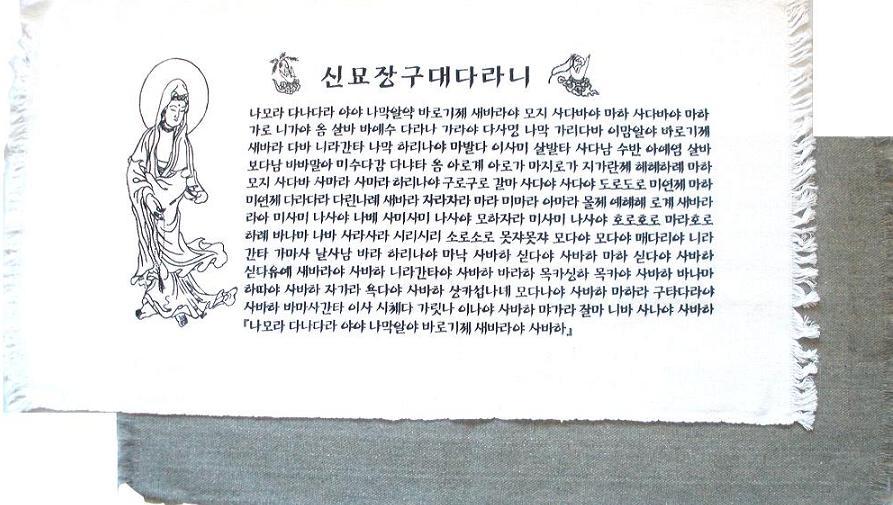 신묘장구대다라니
나모라 다나다라 야야 나막알약 바로기제 새바라야 모지 사다바야 마하 사다바야 마하
가로 니가야 옴 살바 바예수 다라나 가라야 다사명 나막 가리다바 이맘알야 바로기제
새바라 다바 니라간타 나막 하리나야 마발다 이사미 살발타 사다남 수반 아예염 살바
보다남 바바말아 미수다감 다냐타 옴 아로계 아로가 마지로가 지가란제 혜혜하례 마하
모지 사다바 사마라 사마라 하리나야 구로구로 갈마 사다야 사다야 도로도로 미연제 마하
미연제 다라다라 다린나례 새바라 자라자라 마라 미마라 아마라 몰제 예혜혜 로계 새바라
라아 미사미 나사야 나베 사미사미 나사야 모하자라 미사미 나사야 호로호로 마라호로
하례 바나마 나바 사라사라 시리시리 소로소로 못쟈못쟈 모다야 모다야 매다리야 니라
간타 가마사 날사남 바라 하리나야 마낙 사바하 싣다야 사바하 마하 싣다야 사바하
싣다유예 새바라야 사바하 니라간타야 사바하 바라하 목카싱하 목카야 사바하 바나마
하따야 사바하 자가라 욕다야 사바하 상카섭나네 모다나야 사바하 마하라 구타다라야
사바하 바마사간타 이사 시체다 가릿나 이나야 사바하 먀가라 잘마 니바 사나야 사바하
『나모라 다나다라 야야 나막알야 바로기제 새바라야 사바하』